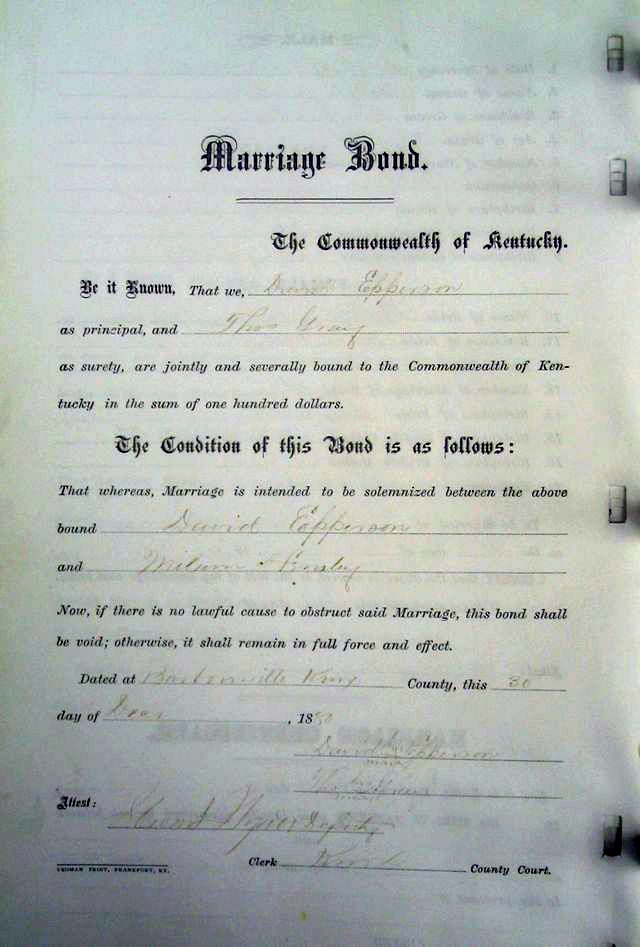 Marriage Bond.
The Commonwealth of Kentucky.
Be it Known, That we, David Epperson
as principal, and Thos Gray
as surety, are jointly and severally bound to the Commonwealth of Ken-
tucky in the sum of one hundred dollars.
The Condition of this Bond is as follows:
That whereas, Marriage is intended to be solemnized between the above
bound David Epperson
and
Now, if there is no lawful cause to obstruct said Marriage, this bond shall
be void; otherwise, it shall remain in full force and effect.
Dated at Knox County, this 30
day of , 1880
David Epperson
Attest:
Deputy
Clerk Knox County Court.
YEOMAN PRINT, FRANKFORT, KY.